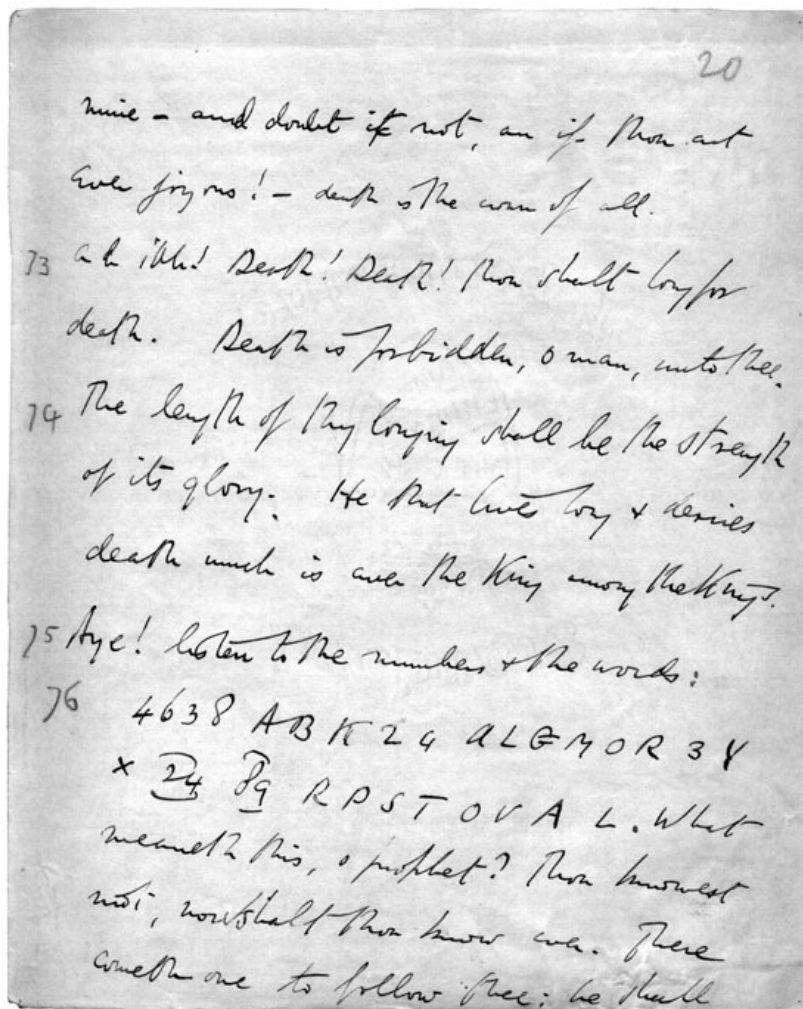 20
mine - and doubt it not, an if thou art
ever joyous! - death is the crown of all.
73 Ah! Ah! Death! Death! thou shalt long for
death. Death is forbidden, o man, unto thee.
74 The length of thy longing shall be the strength
of its glory. He that lives long & desires
death much is ever the King among the Kings.
75 Aye! listen to the numbers & the words:
76 4638 ABK24 ALGMOR3Y
x 24 89 RPSTOVAL. What
meaneth this, o prophet? Thou knowest
not; nor shalt thou know ever. There
cometh one to follow thee: he shall